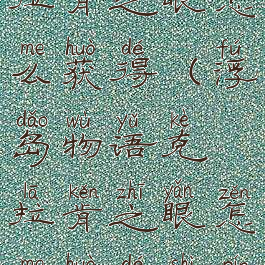 拉肯之眼怎
me huò dé fú
么获得(浮
dǎo wù yǔ kè
岛物语克
lā kěn zhī yǎn zěn
拉肯之眼怎